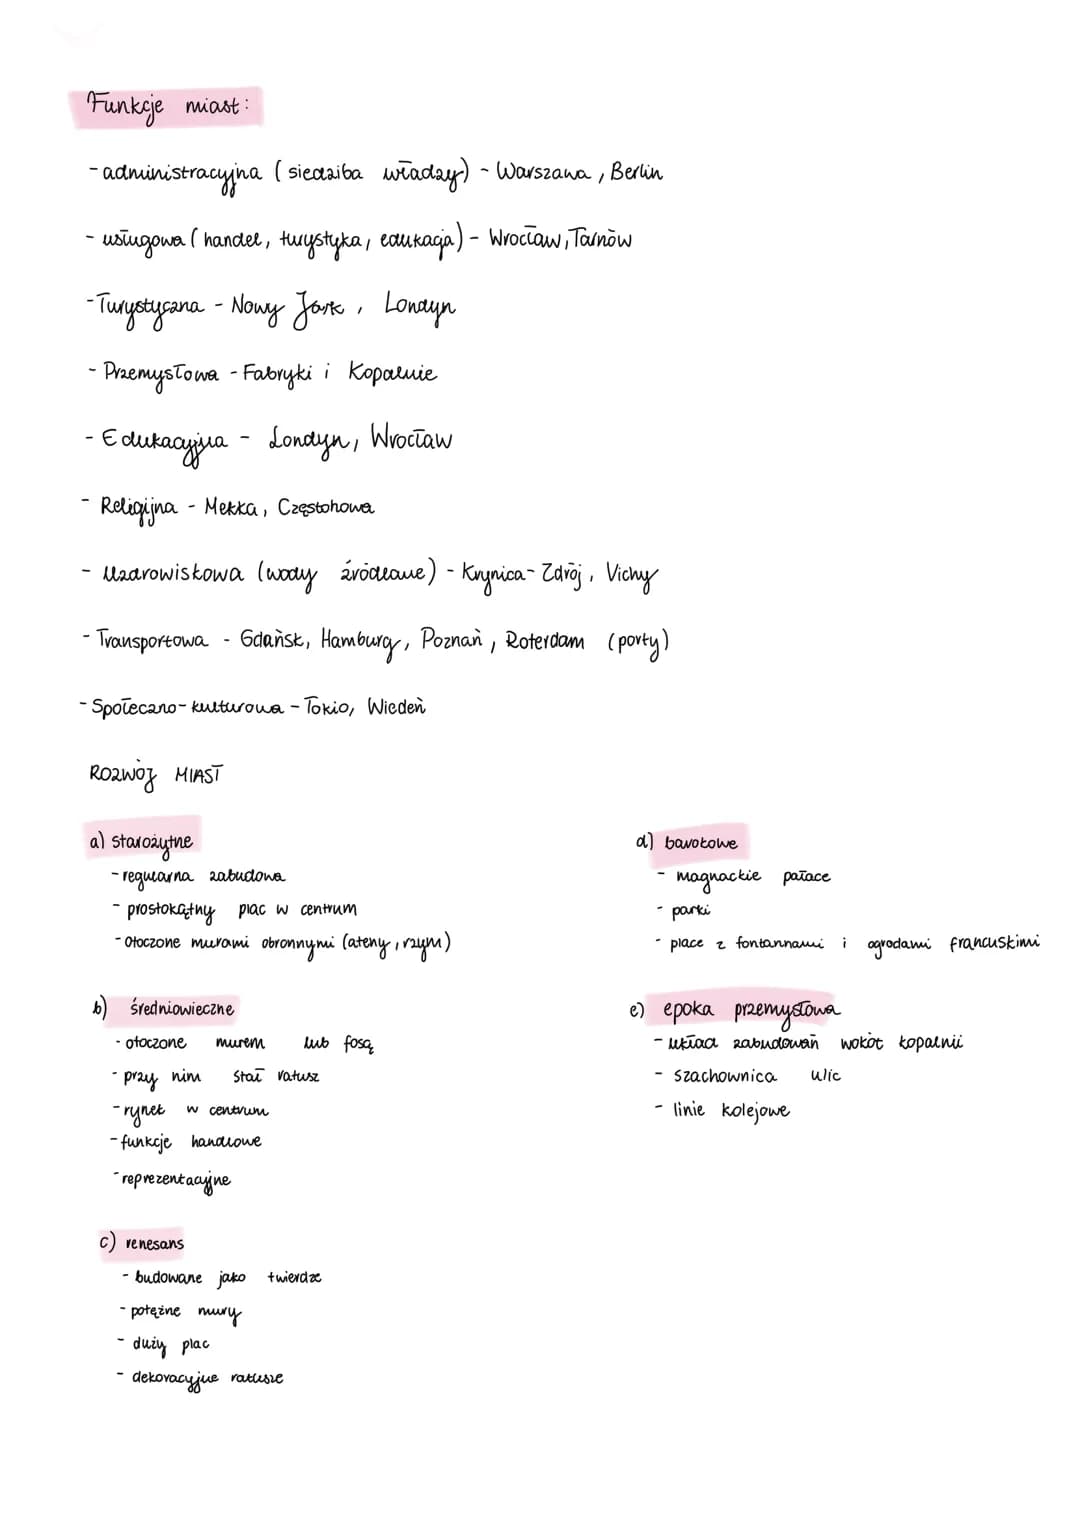 Funkcje miast:
- administracyjna (siedziba władzy) - Warszawa, Berlin
- usługowa (handel, turystyka, edukacja) - Wrocław, Tarnów
- Turystyczna - Nowy Jork, Londyn
- Przemysłowa - Fabryki i Kopalnie
- Edukacyjna - Londyn, Wrocław
- Religijna - Mekka, Częstohowa
- Uzdrowiskowa (wody źródlane) - Krynica-Zdrój, Vichy
- Transportowa - Gdańsk, Hamburg, Poznań, Roterdam (porty)
- Społeczno-kulturowa - Tokio, Wiedeń
ROZWÓJ MIAST
a) starożytne
- regularna zabudowa
- prostokątny plac w centrum
- otoczone murami obronnymi (ateny, rzym)
b) średniowieczne
- otoczone murem lub fosą
- przy nim stał ratusz
- rynek w centrum
- funkcje handlowe
- reprezentacyjne
c) renesans
- budowane jako twierdze
- potężne mury
- duży plac
- dekoracyjne ratusze
d) barokowe
- magnackie pałace
- parki
- place z fontannami i ogrodami francuskimi
e) epoka przemysłowa
- układ zabudowań wokół kopalnii
- szachownica ulic
- linie kolejowe